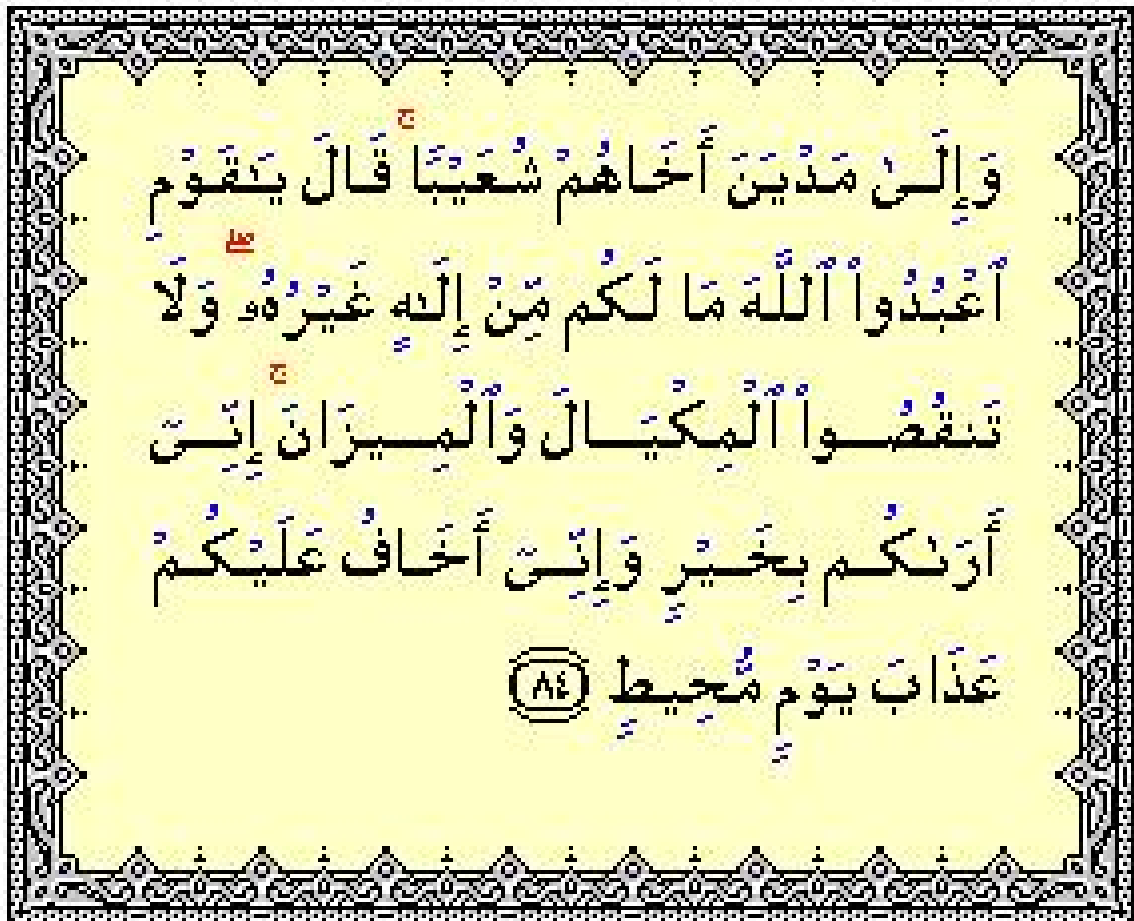 وَإِلَىٰ مَدْيَنَ أَخَاهُمْ شُعَيْبًا ۚ قَالَ يَٰقَوْمِ
ٱعْبُدُوا۟ ٱللَّهَ مَا لَكُم مِّنْ إِلَٰهٍ غَيْرُهُۥ ۖ وَلَا
تَنقُصُوا۟ ٱلْمِكْيَالَ وَٱلْمِيزَانَ ۚ إِنِّىٓ
أَرَىٰكُم بِخَيْرٍ وَإِنِّىٓ أَخَافُ عَلَيْكُمْ
عَذَابَ يَوْمٍ مُّحِيطٍ ٨٤